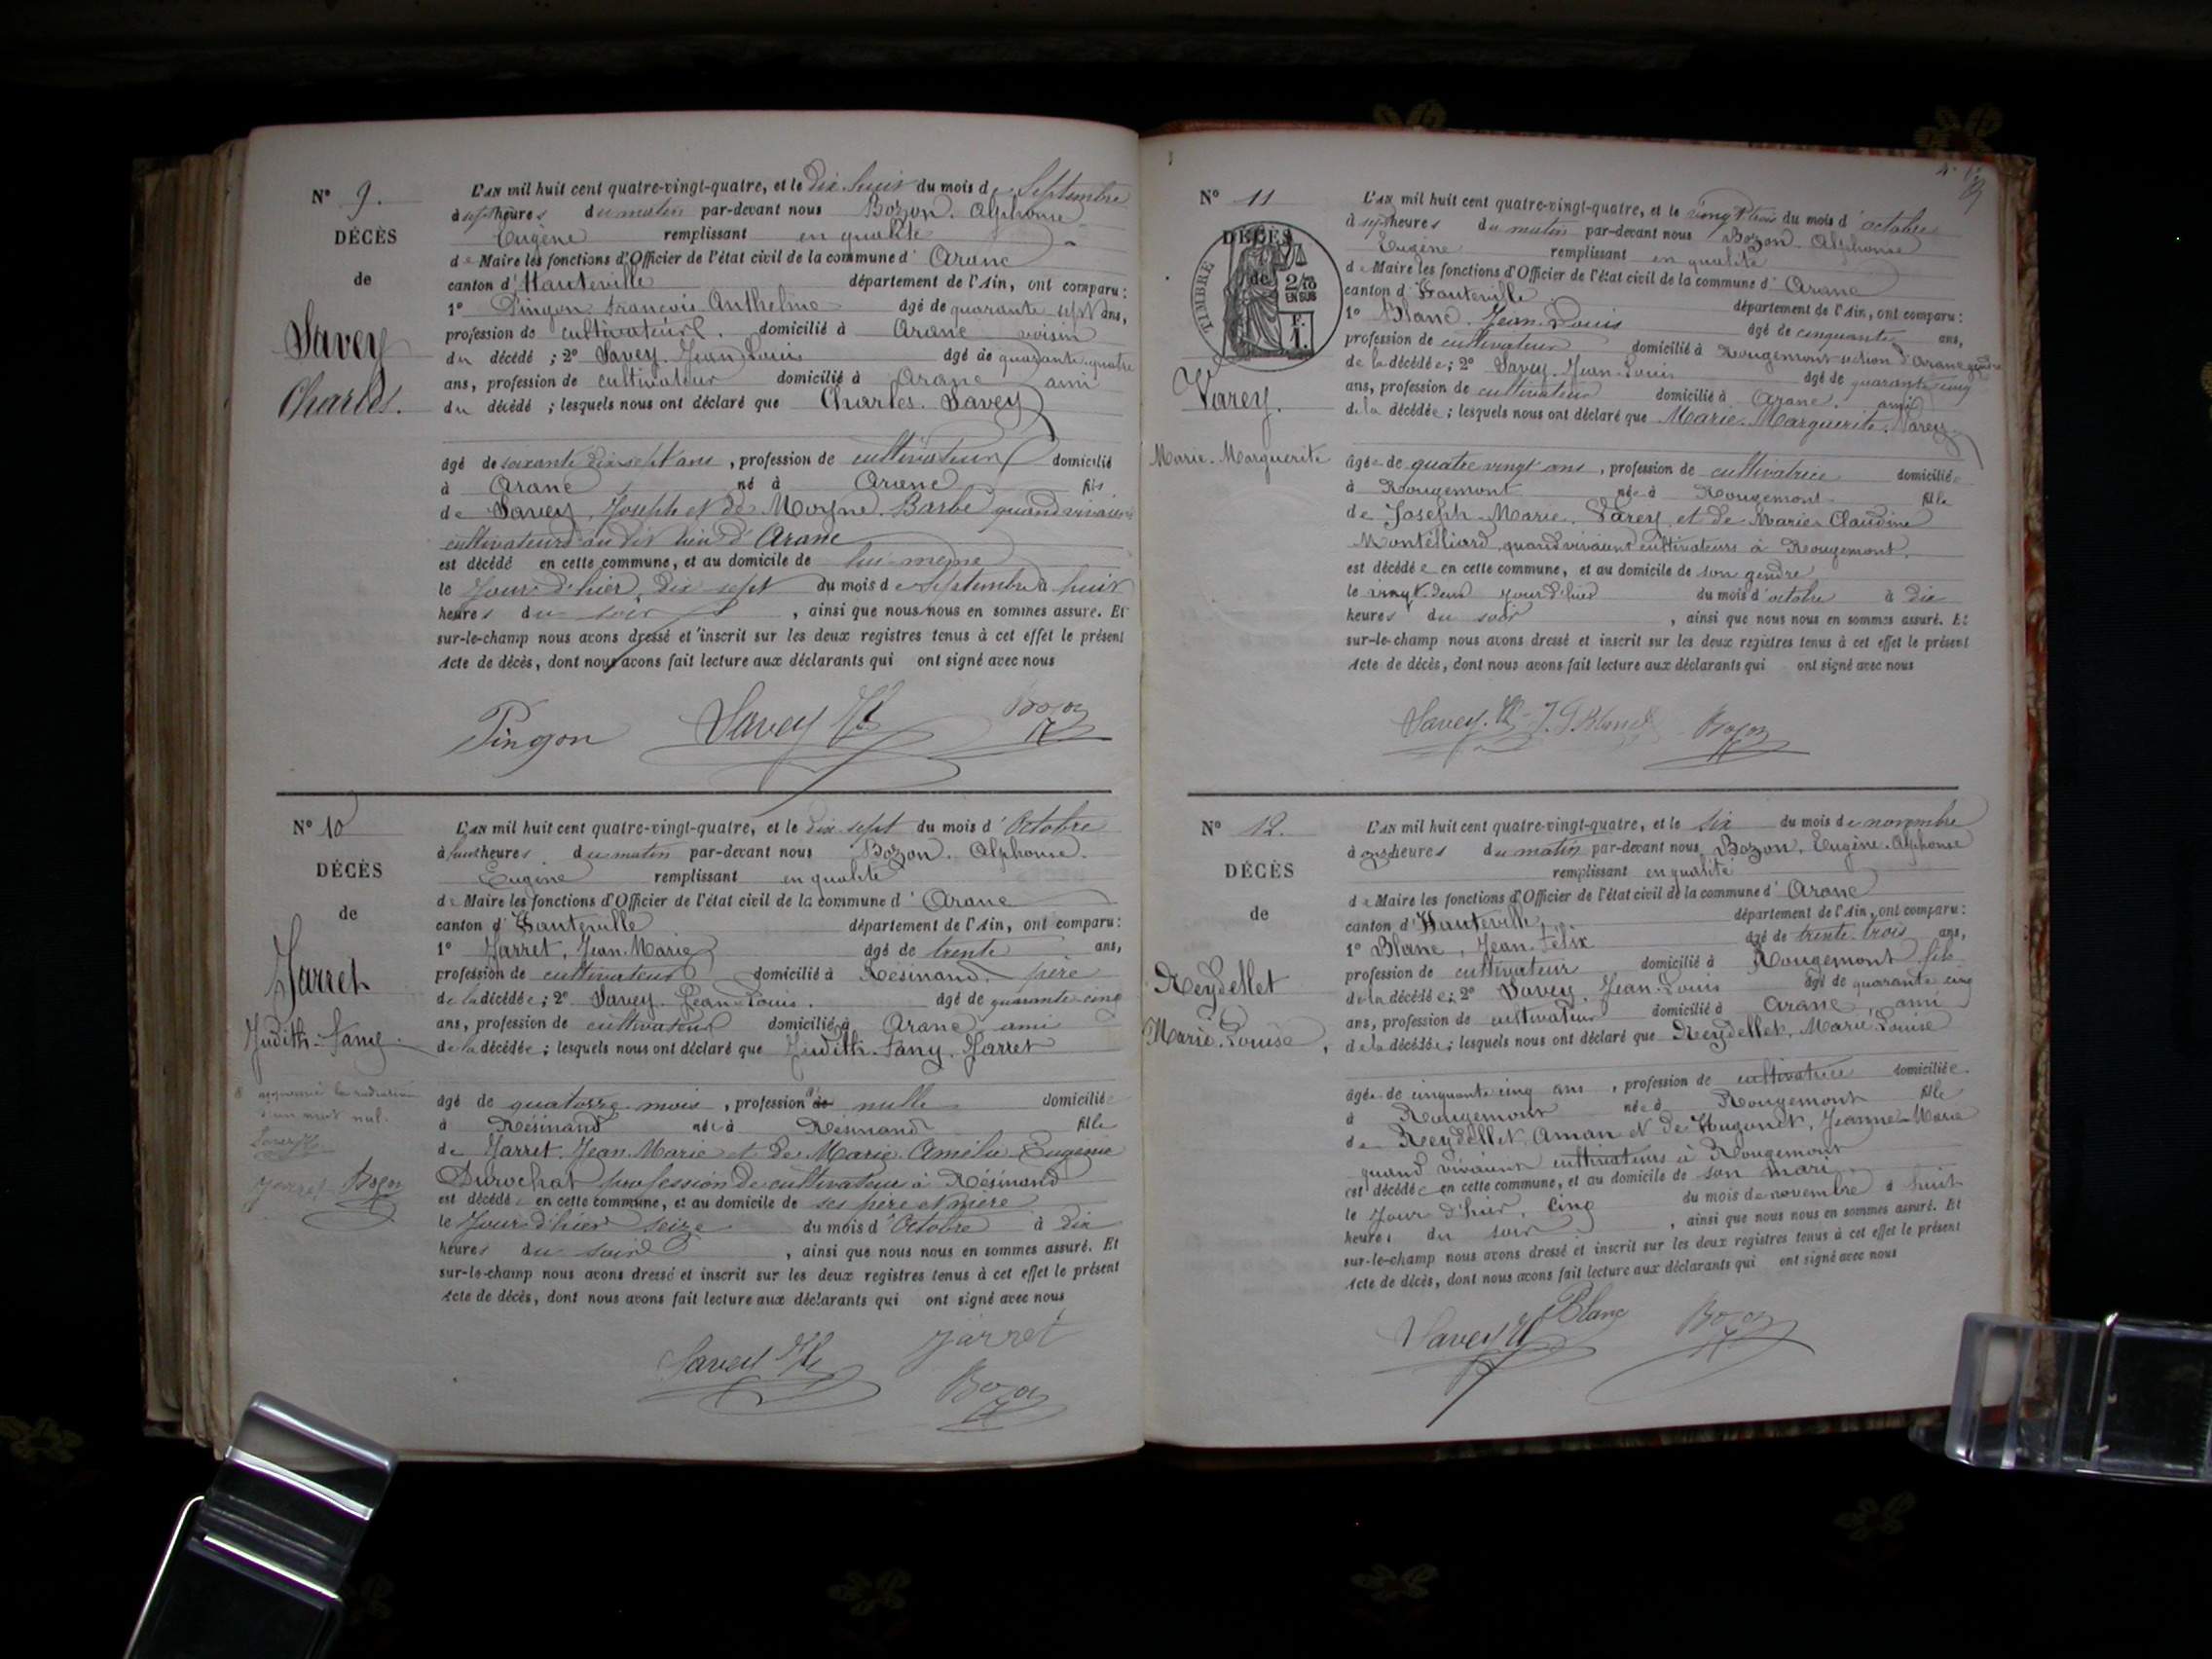 N° 9.
DÉCÈS
de
Savey
Charles.
L'AN mil huit cent quatre-vingt-quatre, et le dix huit du mois de Septembre
à sept heures du matin par-devant nous Bozon. Alphonse
Eugène remplissant en qualité
de Maire les fonctions d'Officier de l'état civil de la commune d' Aranc
canton d'Hauteville département de l'Ain, ont comparu:
1° Pingon François Anthelme âgé de quarante sept ans,
profession de cultivateur. domicilié à Aranc voisin
du décédé ; 2° Savey. Jean Louis âgé de quarante quatre
ans, profession de cultivateur domicilié à Aranc ami
du décédé ; lesquels nous ont déclaré que Charles. Savey
âgé de soixante dix sept ans , profession de cultivateur domicilié
à Aranc né à Aranc fils
de Savey, Joseph et de Moyne. Barbe quand vivaient
cultivateurs au dit lieu d'Aranc
est décédé en cette commune, et au domicile de lui-même
le jour d'hier, dix sept du mois de Septembre à huit
heures du soir , ainsi que nous nous en sommes assuré. Et
sur-le-champ nous avons dressé et inscrit sur les deux registres tenus à cet effet le présent
Acte de décès, dont nous avons fait lecture aux déclarants qui ont signé avec nous
Pingon Savey Bozon
N° 10
DÉCÈS
de
Jarret
Judith-Fany
approuvé la radiation
d'un mot nul.
Jarret Bozon
L'AN mil huit cent quatre-vingt-quatre, et le dix sept du mois d' Octobre
à huit heures du matin par-devant nous Bozon. Alphonse.
Eugène remplissant en qualité
de Maire les fonctions d'Officier de l'état civil de la commune d' Aranc
canton d'Hauteville département de l'Ain, ont comparu:
1° Jarret, Jean-Marie âgé de trente ans,
profession de cultivateur domicilié à Résinand. père
de la décédée ; 2° Savey. Jean-Louis. âgé de quarante-cinq
ans, profession de cultivateur domicilié à Aranc ami
de la décédée ; lesquels nous ont déclaré que Judith-Fany. Jarret
âgé de quatorze mois , profession de nulle domicilié
à Résinand née à Résinand fille
de Jarret. Jean Marie et de Marie Amélie Eugénie
Durochat profession de cultivateur à Résinand
est décédée en cette commune, et au domicile de ses père et mère
le jour d'hier seize du mois d'Octobre à dix
heures du soir , ainsi que nous nous en sommes assuré. Et
sur-le-champ nous avons dressé et inscrit sur les deux registres tenus à cet effet le présent
Acte de décès, dont nous avons fait lecture aux déclarants qui ont signé avec nous
Savey Jarret
Bozon
N° 11
DÉCÈS
de
TIMBRE
2/10
EN SUS
Varey.
Marie-Marguerite
L'AN mil huit cent quatre-vingt-quatre, et le vingt trois du mois d' octobre
à sept heures du matin par-devant nous Bozon. Alphonse
Eugène remplissant en qualité
de Maire les fonctions d'Officier de l'état civil de la commune d' Aranc
canton d'Hauteville département de l'Ain, ont comparu:
1° Blanc. Jean-Louis âgé de cinquante ans,
profession de cultivateur domicilié à Rougemont section d'Aranc gendre
de la décédée ; 2° Savey. Jean-Louis âgé de quarante cinq
ans, profession de cultivateur domicilié à Aranc. ami
de la décédée ; lesquels nous ont déclaré que Marie-Marguerite. Varey.
âgée de quatre vingt ans , profession de cultivatrice domiciliée
à Rougemont née à Rougemont fille
de Joseph-Marie. Varey et de Marie Claudine
Montélliard, quand vivaient cultivateurs à Rougemont.
est décédée en cette commune, et au domicile de son gendre
le vingt-deux jour d'hier du mois d'octobre à dix
heures du soir , ainsi que nous nous en sommes assuré. Et
sur-le-champ nous avons dressé et inscrit sur les deux registres tenus à cet effet le présent
Acte de décès, dont nous avons fait lecture aux déclarants qui ont signé avec nous
Savey. J. L. Blanc Bozon
N° 12.
DÉCÈS
de
Reydellet
Marie-Louise
L'AN mil huit cent quatre-vingt-quatre, et le six du mois de novembre
à onze heures du matin par-devant nous Bozon, Eugène-Alphonse
remplissant en qualité
de Maire les fonctions d'Officier de l'état civil de la commune d' Aranc
canton d'Hauteville, département de l'Ain, ont comparu:
1° Blanc, Jean-Félix âgé de trente-trois ans,
profession de cultivateur domicilié à Rougemont fils
de la décédée ; 2° Savey, Jean-Louis âgé de quarante cinq
ans, profession de cultivateur domicilié à Aranc ami
de la décédée ; lesquels nous ont déclaré que Reydellet, Marie Louise
âgée de cinquante cinq ans , profession de cultivatrice domiciliée
à Rougemont née à Rougemont fille
de Reydellet, Aman et de Hugonet, Jeanne-Marie
quand vivaient cultivateurs à Rougemont
est décédée en cette commune, et au domicile de son mari
le jour d'hier, cinq du mois de novembre à huit
heures du soir , ainsi que nous nous en sommes assuré. Et
sur-le-champ nous avons dressé et inscrit sur les deux registres tenus à cet effet le présent
Acte de décès, dont nous avons fait lecture aux déclarants qui ont signé avec nous
Savey Blanc Bozon